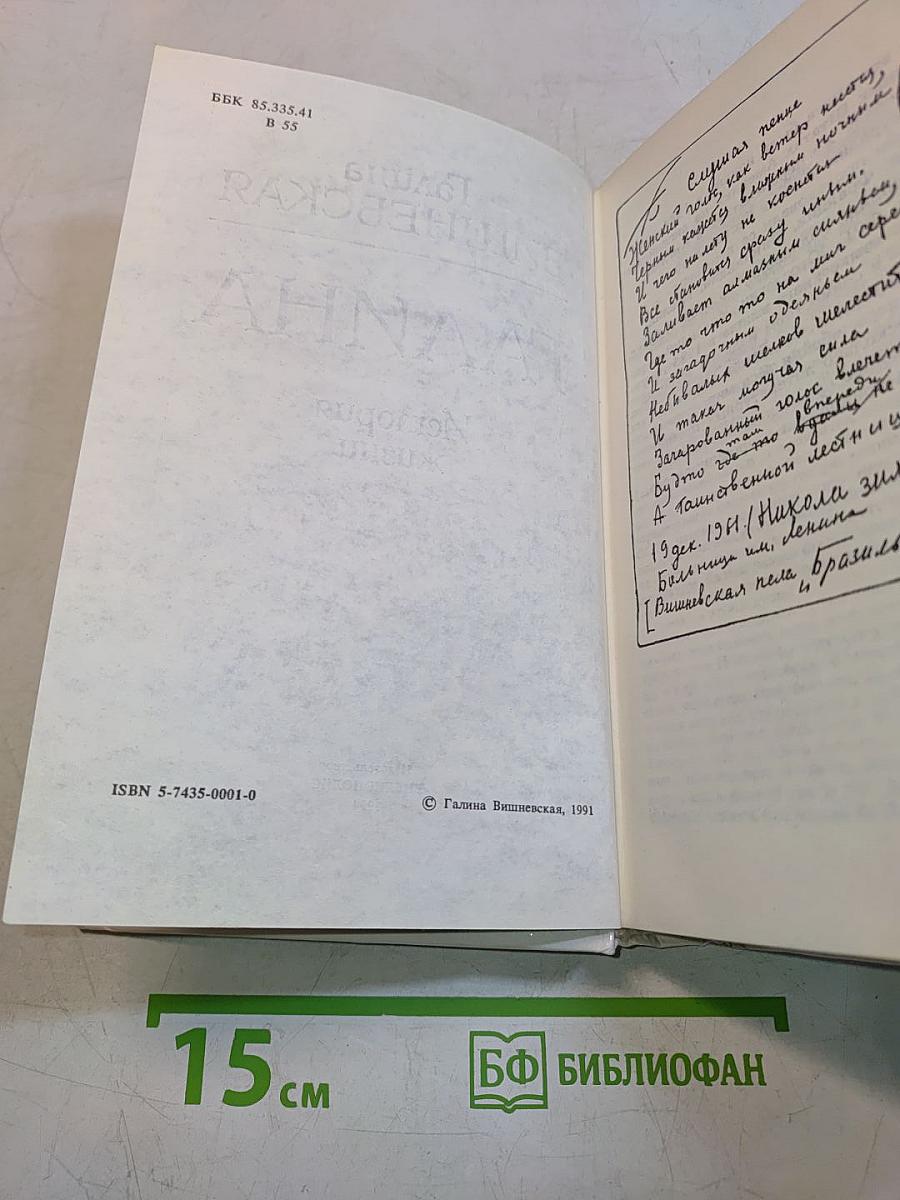 ББК 85.335.41
В 55
Галина
ВИШНЕВСКАЯ
ГАЛИНА
История
жизни
ISBN 5-7435-0001-0
© Галина Вишневская, 1991
Слушая пение
Женский голос, как ветер несется,
Черным кажется, влажным, ночным,
И чего на лету ни коснется
Все становится сразу иным.
Заливает алмазным сияньем,
Где то что то на миг сере
И загадочным одеяньем
Небывалых шелков шелестит
И такая могучая сила
Зачарованный голос влечет
Будто там впереди не
А таинственной лестни
19 дек. 1961. (Никола зим
Больница им. Ленина
[Вишневская пела „Бразиль
15 см
БФ БИБЛИОФАН